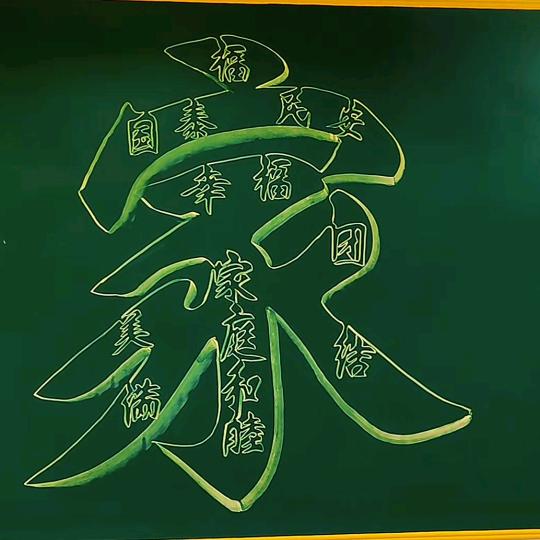 家
福
国泰民安
幸福
团结
美满
家庭和睦